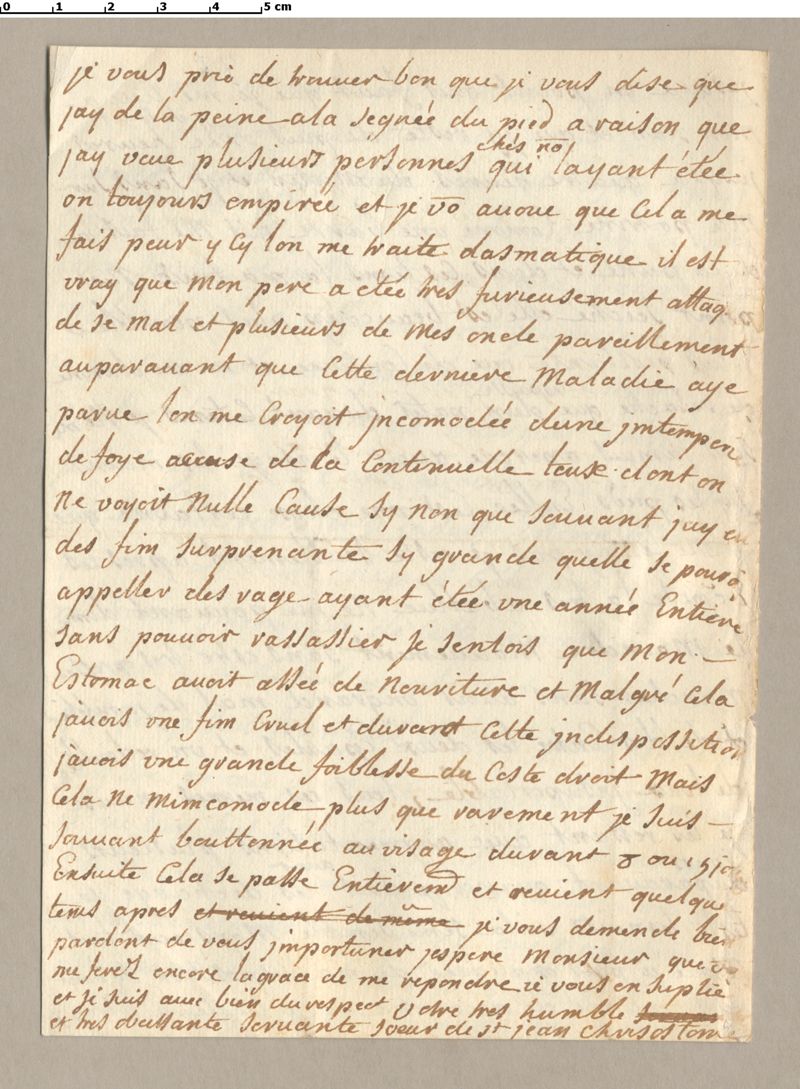 0 1 2 3 4 5 cm
je vous prie de trouuer bon que je vous dise que
jay de la peine ala segnée du pied a raison que
jay veue plusieurs personnes chés no qui layant étée
on toujours empirée et je vo auoue que Cela me
fais peur y Cy lon me traite dasmatique il est
vray que mon pere a étée tres furieusement attaq
de se mal et plusieurs de mes oncle pareillement
auparauant que Cette derniere Maladie aye
parue lon me Croyoit jncomodée dune jmtemperi
de foye acause de la Continuelle teuse dont on
Ne voyoit Nulle Cause sy non que souuant jay eu
des fim surprenante sy grande quelle se pouro
appeller des rage ayant étée vne année Entiere
sans pouuoir rassassier je sentois que mon
Estomac auoit assée de Nouriture et Malgré Cela
jauois vne fim Cruel et durant Cette jndisposition
jauois vne grande foiblesse du Coste droit Mais
Cela Ne mimcomode plus que rarement je suis
souuant bouttonnée au visage durant 8 ou 15 jo
Ensuite Cela se passe Entierem et reuient quelque
tems apres et reuient de même je vous demende bien
pardont de vous jmportuner jespere Monsieur que vo
me ferez encore la grace de me repondre je vous en suplie
et je suis auec bien du respect Votre tres humble
et tres obeissante seruante soeur de st jean Chrisostome